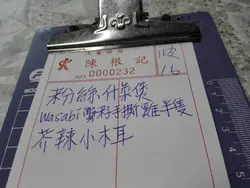 陳根記
NO.0000232
16
粉絲什菜煲
wasabi蟹籽手撕雞半隻
芥辣小木耳